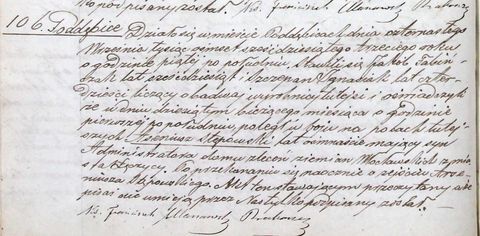 podpisany został. Ks. Franciszek Ulanowski
106. Poddębice Działo się w mieście Poddębicach dnia czternastego
Września tysiąc ośmset sześćdziesiątego trzeciego roku
o godzinie piątej po południu, Stawili się Jakób
lat sześćdziesiąt i Szczepan Ignasiak lat czter-
dzieści liczący obadway tutejsi i oświadczyli
że w dniu dziesiątym bieżącego miesiąca o godzinie
pierwszej po południu, poległ w boju na polach tutej-
szych Arseniusz Stępowski lat ośmnaście mający syn
Administratora domu zleceń ziemian w mie-
ście Łęczycy. Po przekonaniu się naocznie o zejściu Arse-
niusza Stępowskiego. Akt ten stawającym przeczytany a że
pisać nie umieją przez Nas tylko podpisany został.
Ks. Franciszek Ulanowski